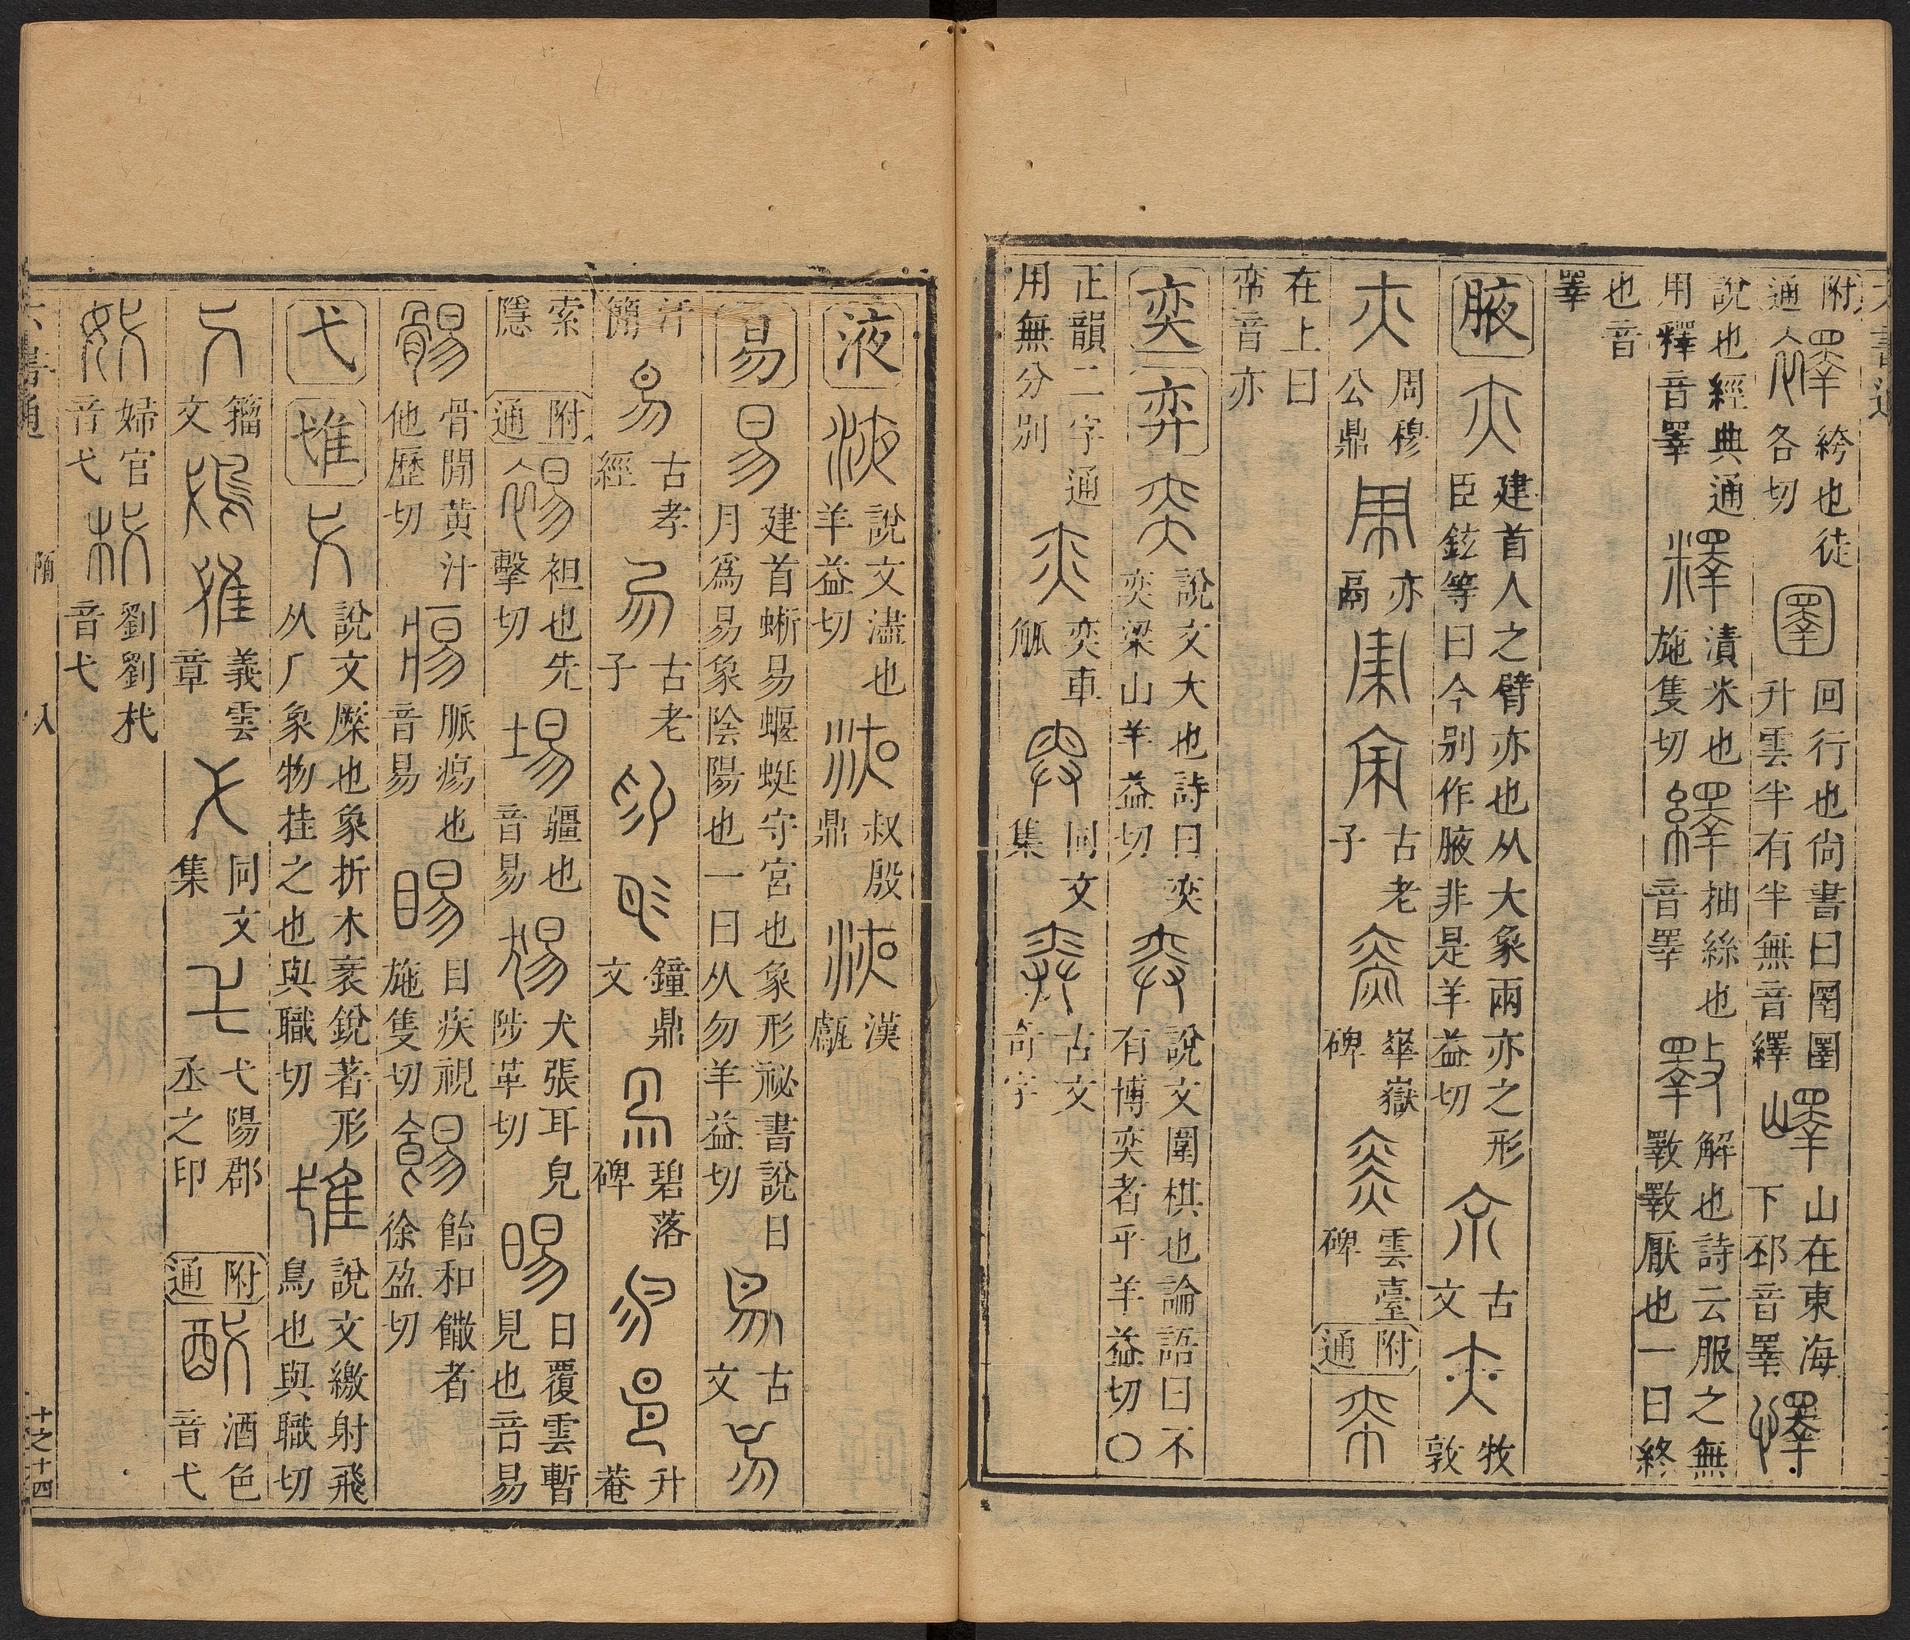 附通
絝也徒各切
圛
回行也尙書曰圛圛升雲半有半無音繹
山在東海下邳音睪
說也經典通用釋音睪
漬米也施隻切
抽絲也音睪
解也詩云服之無斁斁厭也一曰終也音睪
腋
建首人之臂亦也从大象兩亦之形臣鉉等曰今別作腋非是羊益切
古文
牧敦
周穆公鼎
亦鬲
古老子
華嶽碑
雲臺碑
附通
在上曰帟音亦
奕
弈
說文大也詩曰奕奕梁山羊益切
說文圍棋也論語曰不有博奕者乎羊益切〇
正韻二字通用無分別
奕車觚
同文集
古文奇字
液
說文㵸也羊益切
叔殷鼎
漢甗
易
建首蜥易蝘蜓守宮也象形祕書說日月爲易象陰陽也一曰从勿羊益切
古文
汗簡
古孝經
古老子
鐘鼎文
碧落碑
升菴
索隱
附通
袒也先擊切
疆也音易
犬張耳皃陟革切
日覆雲暫見也音易
骨閒黃汁他歷切
脈瘍也音易
目疾視施隻切
飴和饊者徐盈切
弋
隿
說文橜也象折木衺銳著形从厂象物挂之也與職切
說文繳射飛鳥也與職切
籀文
義雲章
同文集
弋陽郡丞之印
附通
酒色音弋
婦官音弋
劉劉杙音弋
六書通
隋
入
十之十四